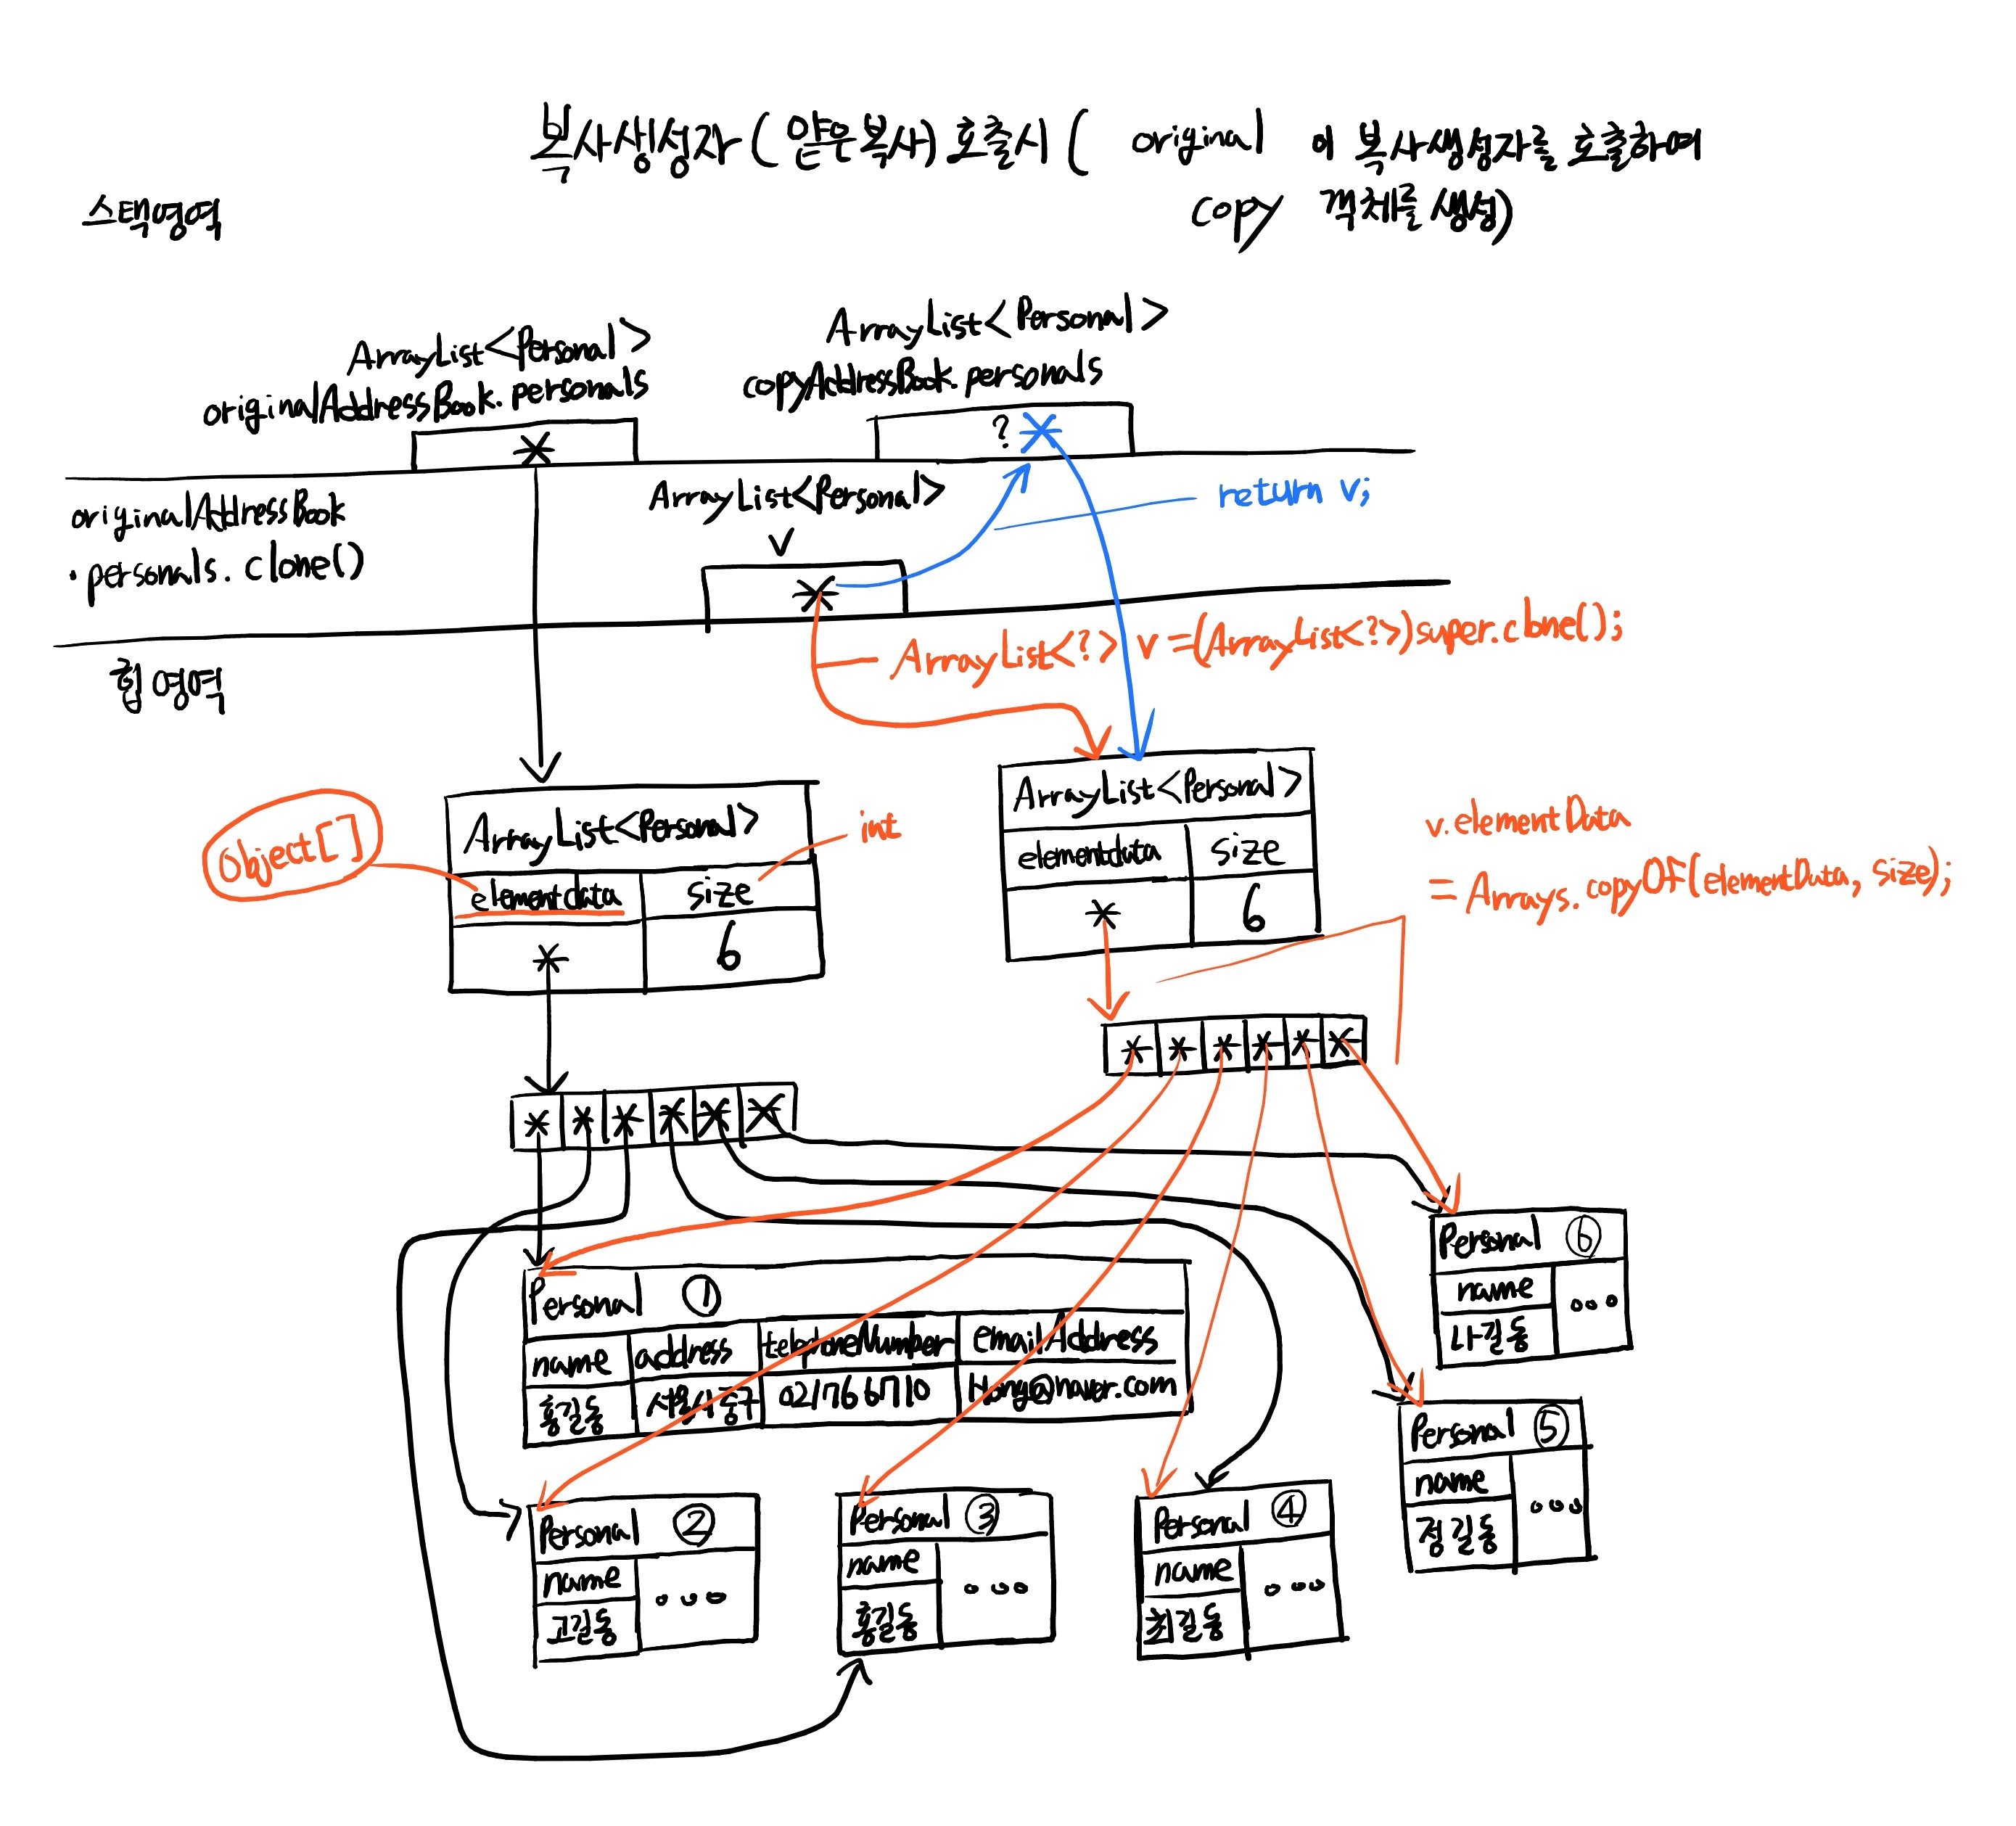 복사생성자 (얕은복사) 호출시 ( original 이 복사생성자를 호출하여
copy 객체를 생성)
스택영역
ArrayList<Personal>
originalAddressBook.personals
ArrayList<Personal>
copyAddressBook.personals
*
? *
originalAddressBook
.personals.clone()
ArrayList<Personal>
v
*
return v;
힙영역
ArrayList<?> v =(ArrayList<?>)super.clone();
Object[]
ArrayList<Personal>
int
elementdata size
* 6
ArrayList<Personal>
elementdata size
* 6
v.elementData
= Arrays.copyOf(elementData, size);
* * * * * *
* * * * * *
Personal ①
name address telephoneNumber emailAddress
홍길동 서울시중구 021766710 Hong@naver.com
Personal ②
name ...
고길동
Personal ③
name ...
홍길동
Personal ④
name ...
최길동
Personal ⑤
name ...
정길동
Personal ⑥
name ...
나길동